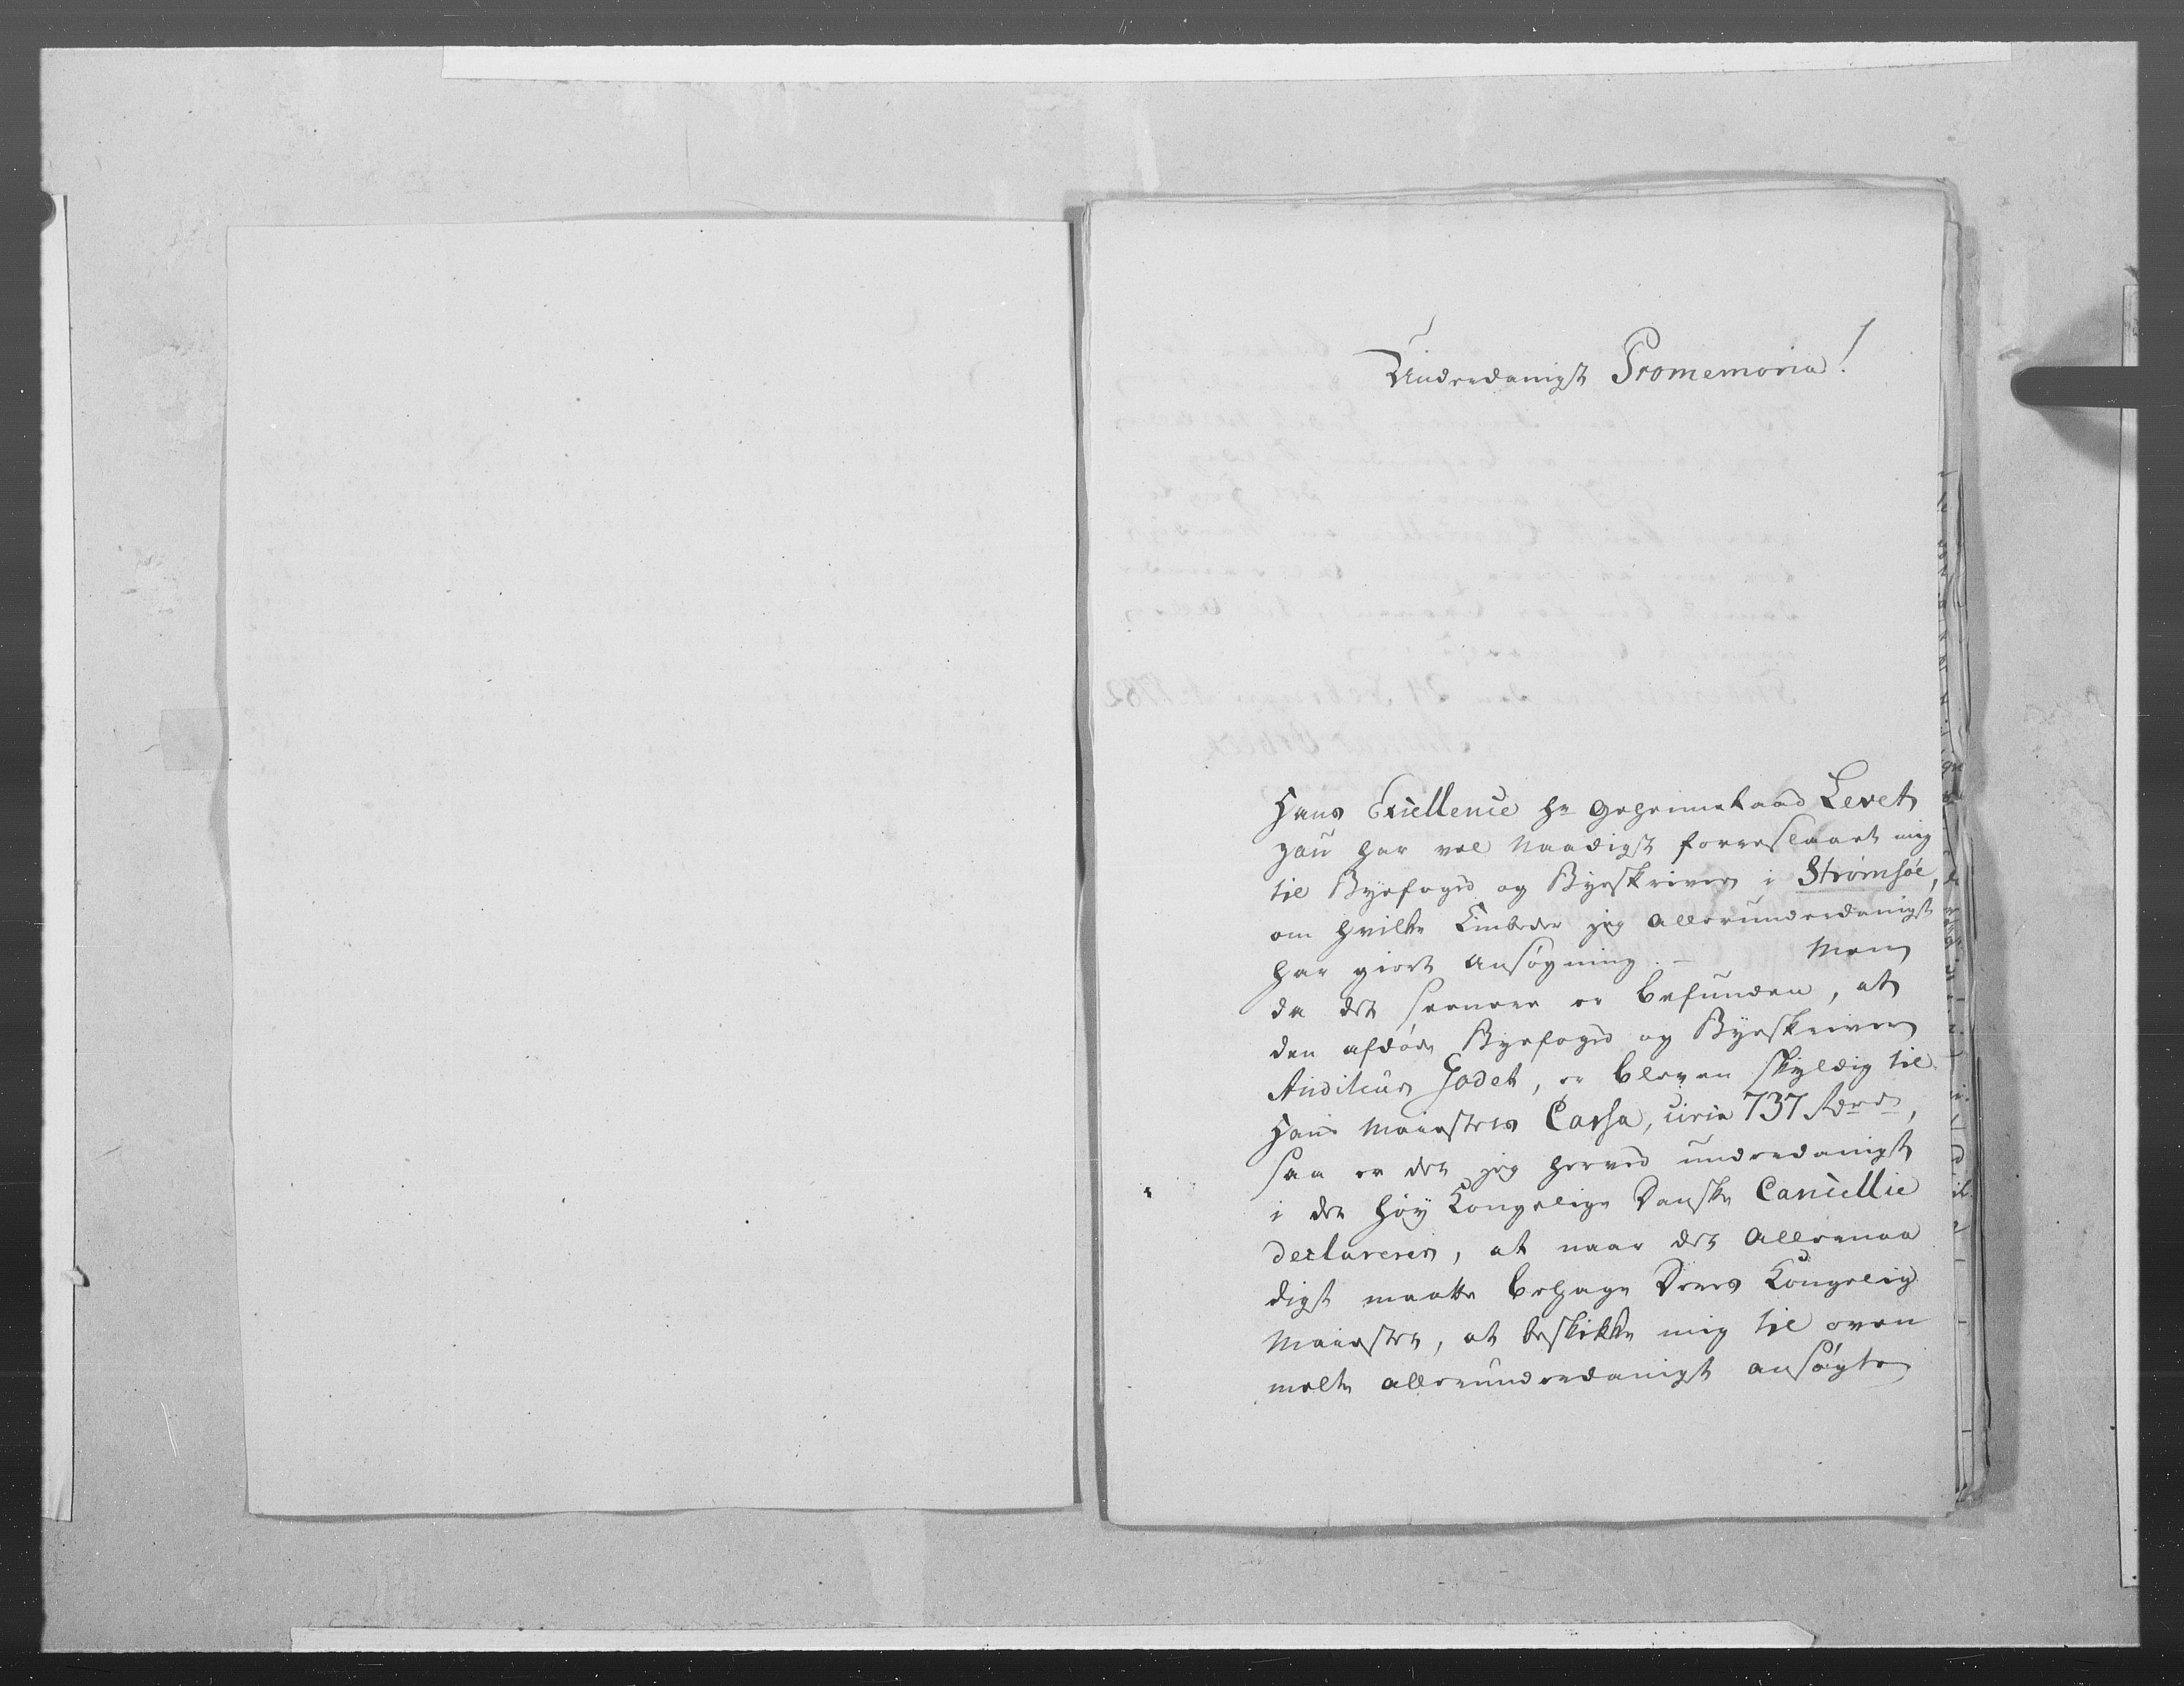 Underdanigst Promemoria!
Hans Excellence Hr Geheimeraad Levet
zau har vel Naadigst foreslaaet mig
til Byefoged og Byeskriver i Strømsöe,
om hvilke Embeder jeg allerunderdanigst
har giort Ansøgning. – Men
da det seenere er befunden, at
den afdøde Byefoged og Byeskriver
Auditeur Godet, er bleven skyldig til
Hans Maiestets Cassa, circa 737 Rdr,
saa er det jeg herved underdanigst
i det høy Kongelige Danske Cancellie
declarerer, at naar det Allernaa
digst maatte behage Deres Kongelig
Maiestet, at beskikke mig til oven
melte allerunderdanigst ansøgte